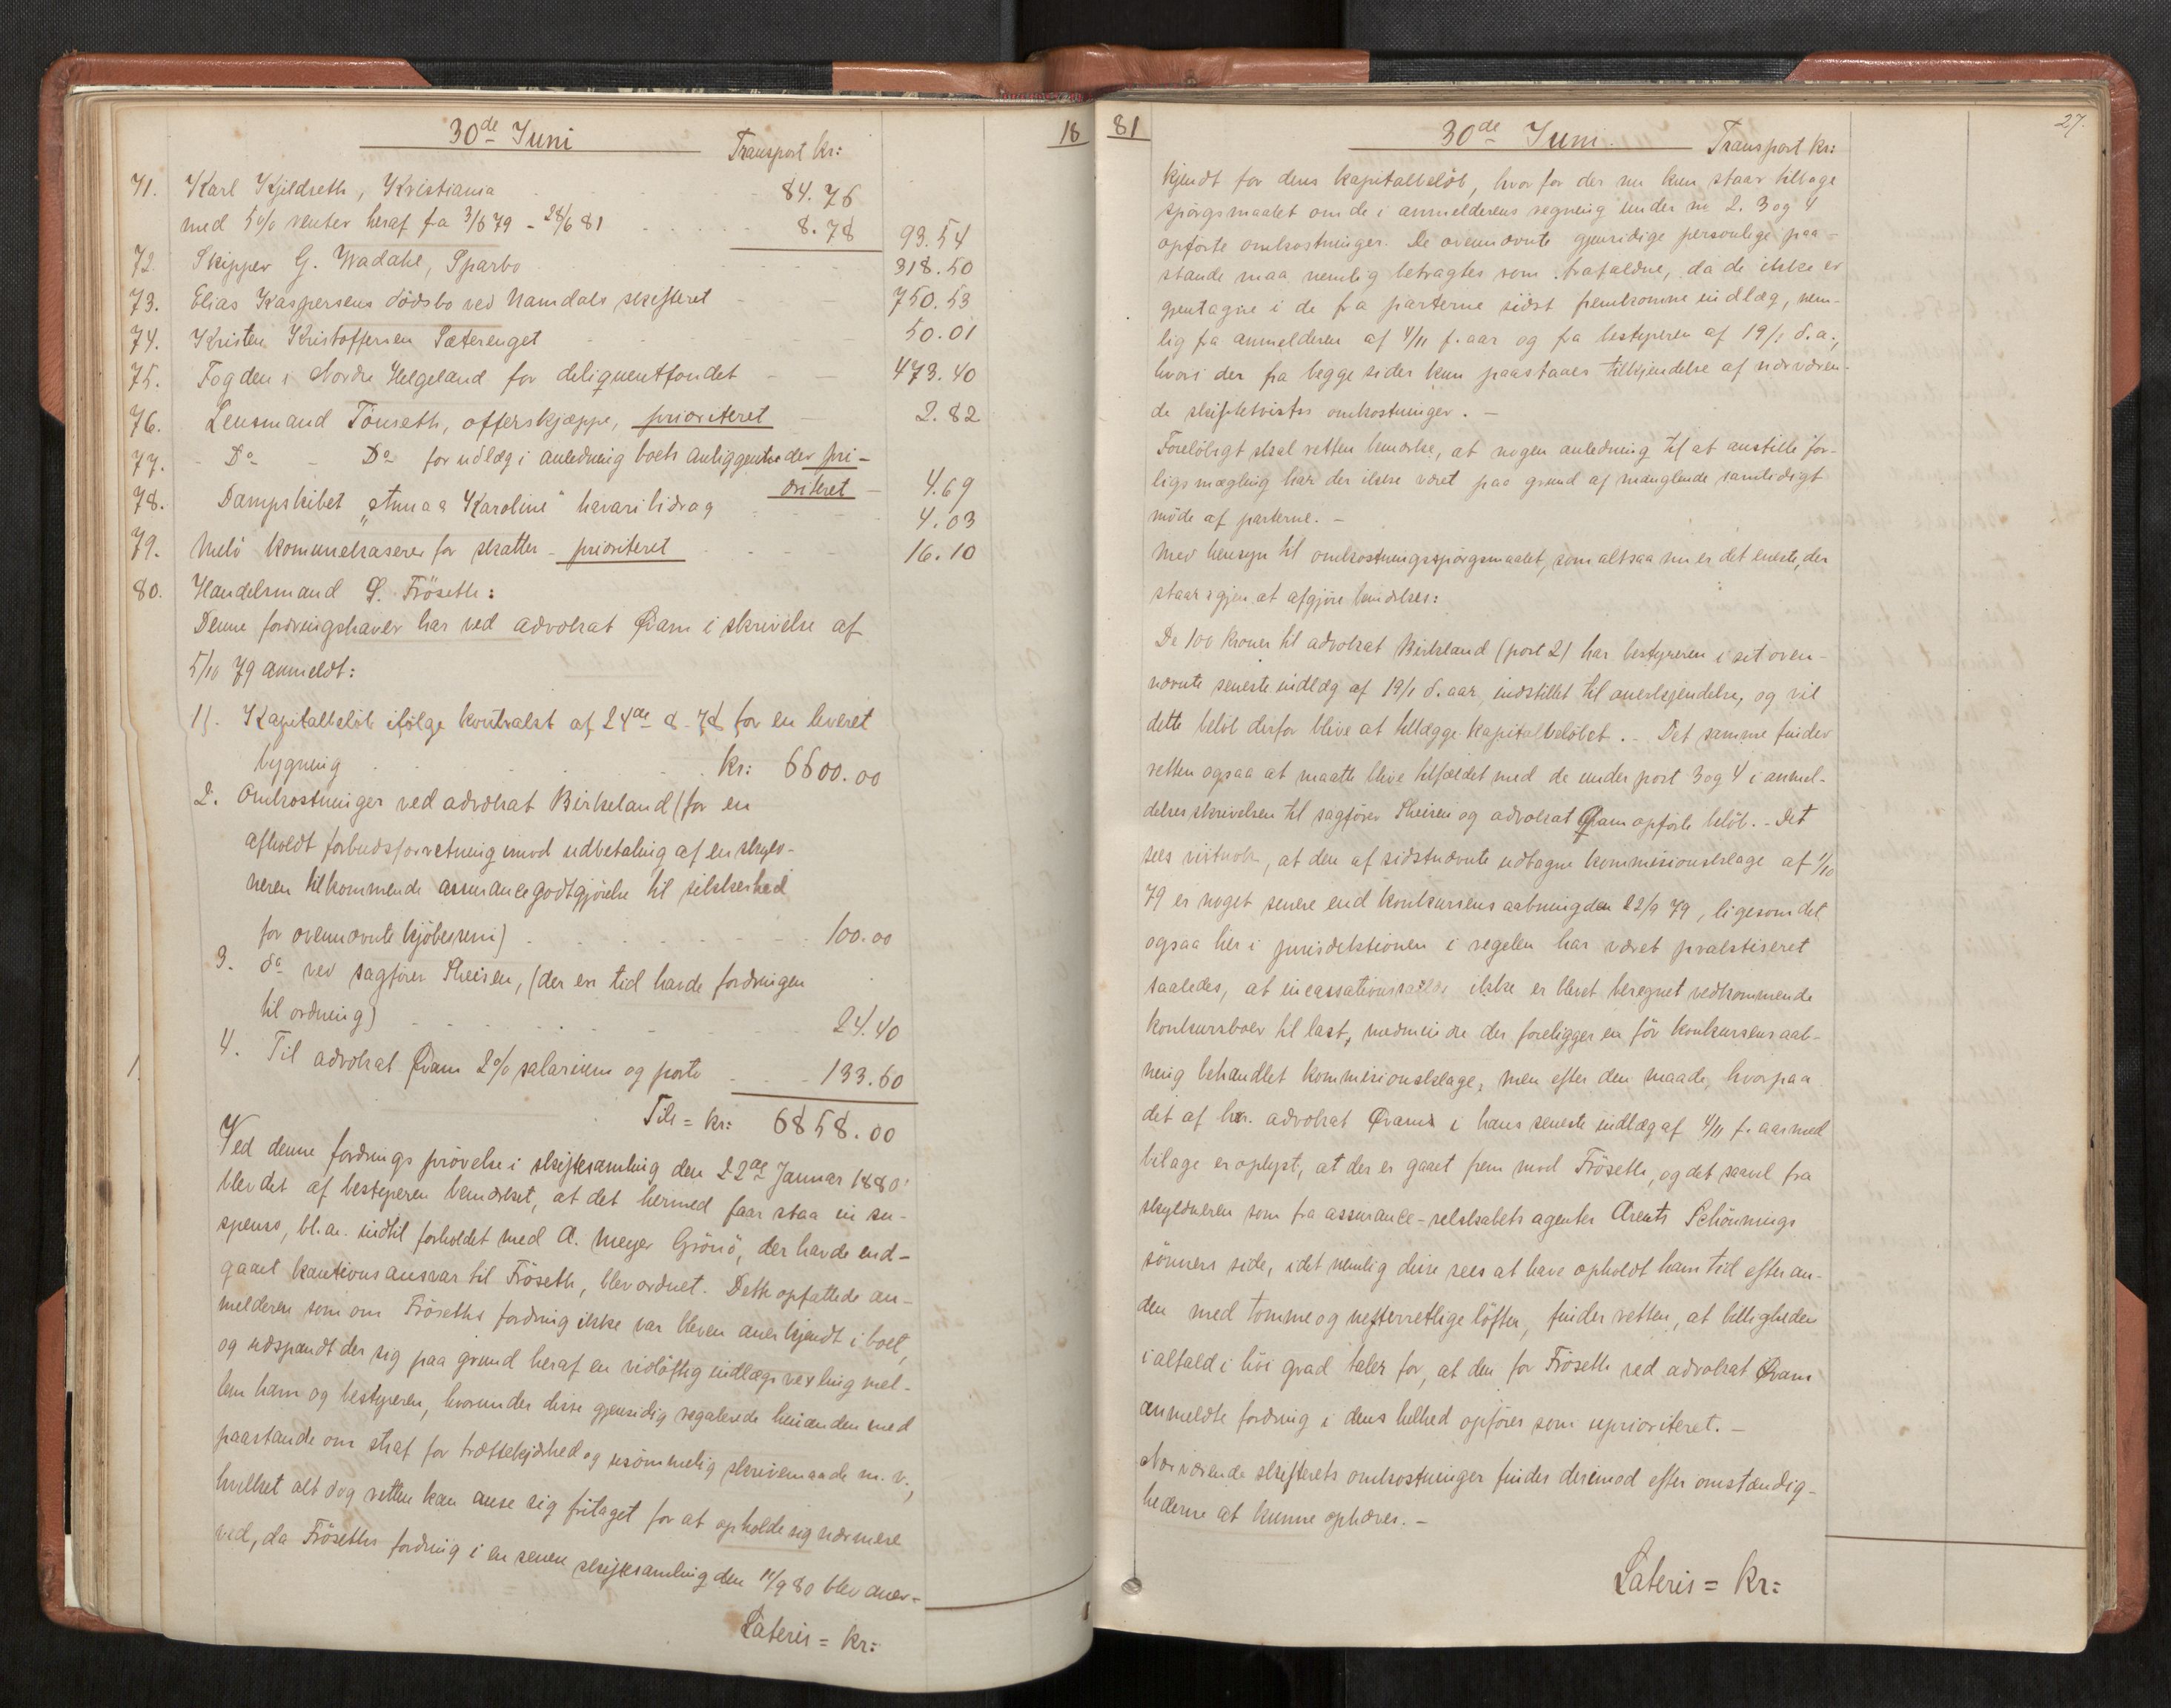 30de Juni 18
Transport kr:
71. Karl Kjeldseth, Kristiania 84.76
med 5% renter heraf fra 3/6 79 - 28/6 81 8.78 93.54
72. Skipper G. Wadahl, Sparbo 318.50
73. Elias Kaspersens dödsbo ved Namdals skifteret 750.53
74. Kristen Kristoffersen Sæterenget 50.01
75. Fogden i Nordre Helgeland for deliquentfondet 473.40
76. Lensmand Tönseth, offerskjæppe, prioriteret 2.82
77. Do Do for udlæg i anledning boets anliggender pri-
oriteret 4.69
78. Dampskibet „Anna Karoline" havaribidrag 4.03
79. Melö kommunekasserer for skatter - prioriteret 16.10
80. Handelsmand S. Fröseth:
Denne fordringshaver har ved advokat Qvam i skrivelse af
5/10 79 anmeldt:
1). Kapitalbelöb ifölge kontrakt af 24de 8 - 78 for en leveret
bygning kr: 6600.00
2. Omkostninger ved advokat Birkeland (for en
afholdt forbudsforretning imod udbetaling af en skyld-
neren tilkommende assurancegodtgjörelse til sikkerhed
for ovennævnte kjöbesum) 100.00
3. do ved sagförer Theisen, (der en tid havde fordringen
til ordning) 24.40
4. Til advokat Qvam 2% salarium og porto 133.60
Tils = kr: 6858.00
Ved denne fordrings prövelse i skiftesamling den 22de Januar 1880
blev det af bestyreren bemærket, at det hermed faar staa in su-
spenso, bl.a. indtil forholdet med A. Meyer Grönö, der havde ind-
gaaet kautionsansvar til Fröseth, blev ordnet. Dette opfattede an-
melderen som om Fröseths fordring ikke var bleven anerkjendt i boet,
og udspandt der sig paa grund heraf en vidlöftig indlægsvexling mel-
lem ham og bestyreren, hvorunder disse gjensidig regalerede hinanden med
paastande om straf for trættekjærhed og usömmelig skrivemaade m. v.,
hvilket alt dog retten kan anse sig fritaget for at opholde sig nærmere
ved, da Fröseths fordring i en senere skiftesamling den 11/9 80 blev aner-
Lateris = kr:
81 30de Juni. 27.
Transport kr:
kjendt for dens kapitalbelöb, hvorfor der nu kun staar tilbage
spörgsmaalet om de i anmelderens regning under no 2. 3 og 4
opförte omkostninger. De ovennævnte gjensidige personlige paa-
stande maa nemlig betragtes som frafaldne, da de ikke er
gjentagne i de fra parterne sidst fremkomne indlæg, nem-
lig fra anmelderen af 4/11 f. aar og fra bestyreren af 19/1 d. a.,
hvori der fra begge sider kun paastaaes tilkjendelse af nærværen-
de skiftetvists omkostninger. -
Foreløbigt skal retten bemærke, at nogen anledning til at anstille for-
ligsmægling har der ikke været paa grund af manglende samtidigt
möde af parterne. -
Med hensyn til omkostningsspörgsmaalet, som altsaa nu er det eneste, der
staar igjen at afgjöre bemærkes:
De 100 kroner til advokat Birkeland (post 2) har bestyreren i sit oven-
nævnte seneste indlæg af 19/1 d. aar indstillet til anerkjendelse, og vil
dette belöb derfor blive at tillægge kapitalbelöbet. - Det samme finder
retten ogsaa at maatte blive tilfældet med de under post 3 og 4 i anmel-
delsesskrivelsen til sagförer Theisen og advokat Qvam opförte belöb. - Det
sees vistnok, at den af sidstnævnte udtagne kommisionsklage af 1/10
79 er noget senere end konkursens aabning den 22/9 79, ligesom det
ogsaa her i jurisdiktionen i regelen har været praktiseret
saaledes, at incassations ikke er blevet beregnet vedkommende
konkursboer til last, medmindre der foreligger en för konkursens aab-
ning behandlet kommisionsklage, men efter den maade, hvorpaa
det af hr. advokat Qvam i hans seneste indlæg af 4/11 f. aar med
bilage er oplyst, at der er gaaet frem mod Fröseth, og det saavel fra
skyldneren som fra assurance-selskabets agenter Arents Schönnings
sönners side, idet nemlig disse sees at have opholdt ham tid efter an-
den med tomme og uefterretlige löfter, finder retten, at billigheden
ialfald i höi grad taler for, at den for Fröseth ved advokat Qvam
anmeldte fordring i dens helhed opföres som uprioriteret. -
Nærværende skifterets omkostninger findes derimod efter omstændig-
hederne at kunne ophæves. -
Lateris = kr: